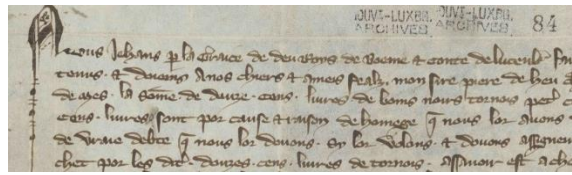 GOUV-LUXBG. GOUV-LUXBG. 84
ARCHIVES ARCHIVES
Nous Jehans p la Grace de deu Roys de Boeme et conte de lucenb
tenus et devons A nos chiers et ameis fealz mon sire piere de heu
de mes la some de douze cens livres de boins nours tornois
cens livres sont por cause et raison de homege q nous lor avons
de vraie debte q nous lor devons En lor volons et devons
chet por les dit douzes cens livres de tornois Assavoir est